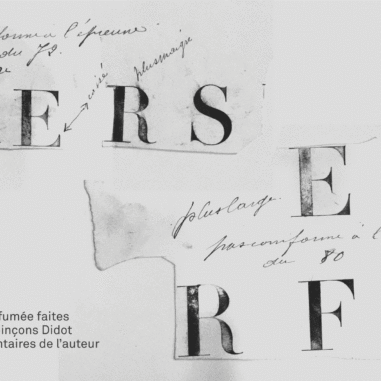 forme à l'épreuve
du 72.
visé plus maigre
E R S
E
plus large
pas conforme à l
du 80
R F
fumée faites
inçons Didot
ntaires de l'auteur